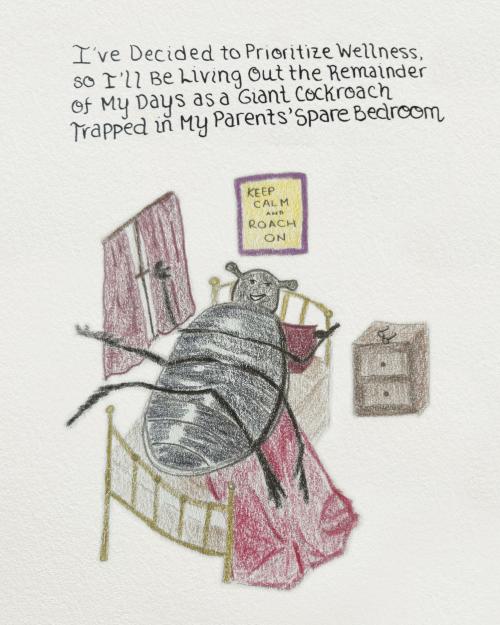 I've Decided to Prioritize Wellness,
so I'll Be Living Out the Remainder
of My Days as a Giant Cockroach
Trapped in My Parents' Spare Bedroom
KEEP
CALM
AND
ROACH
ON